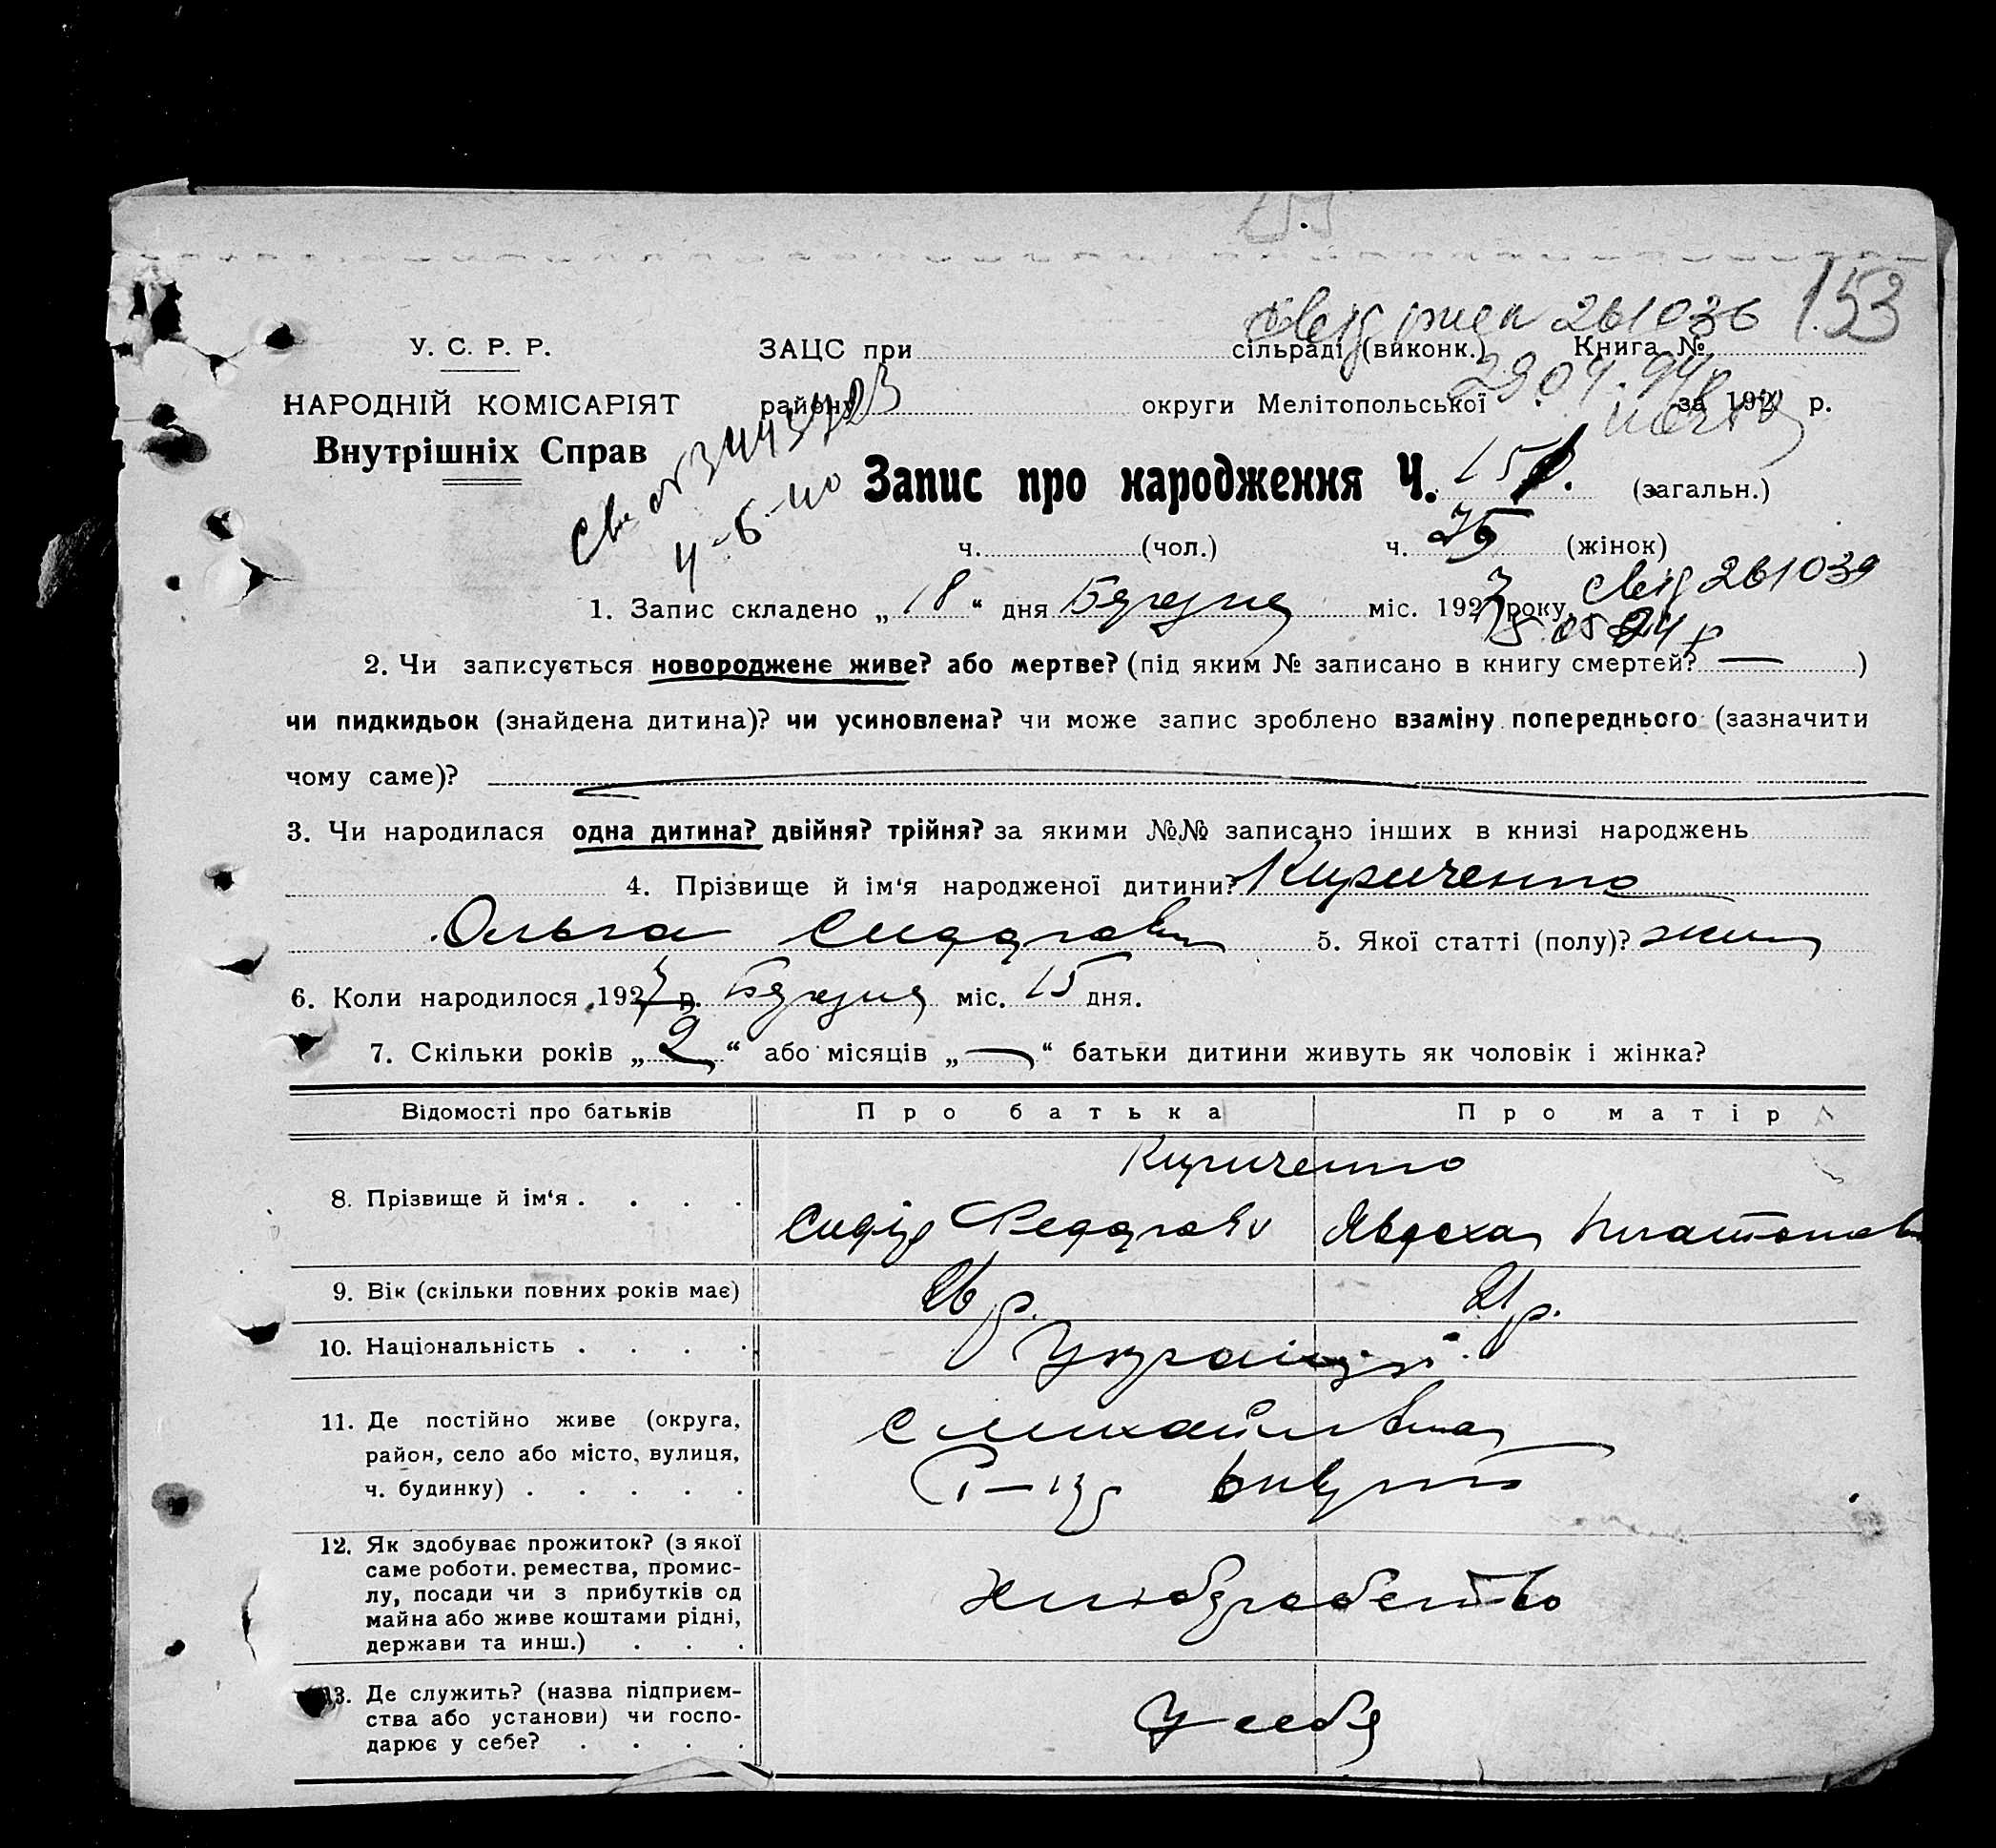 153
У. С. Р. Р.
ЗАЦС при сільраді (виконк.) Книга №
261036
НАРОДНІЙ КОМІСАРІЯТ
району округи Мелітопольської за 192 р.
Внутрішніх Справ
Запис про народження Ч. 15 (загальн.)
ч. (чол.) ч. 75 (жінок)
261039
1. Запис складено „ 18 “ дня Березня міс. 1927 року
2. Чи записується новороджене живе? або мертве? (під яким № записано в книгу смертей? — )
чи пидкидьок (знайдена дитина)? чи усиновлена? чи може запис зроблено взаміну попереднього (зазначити
чому саме)?
3. Чи народилася одна дитина? двійня? трійня? за якими №№ записано інших в книзі народжень
4. Прізвище й ім‘я народженої дитини? Кириченко
Ольга Сидоровн 5. Якої статті (полу)? жін
6. Коли народилося 1927 р. Березня міс. 15 дня.
7. Скільки років „ 2 “ або місяців „ — “ батьки дитини живуть як чоловік і жінка?
Відомості про батьків Про батька Про матір
Кириченко
8. Прізвище й ім‘я . . . .
Сидір Федоров Явдоха Платонов
9. Вік (скільки повних років має) 26 р. 21 р.
10. Національність . . . . Україн
11. Де постійно живе (округа, район, село або місто, вулиця, ч. будинку) . . . . .
с Михайлівка
12. Як здобуває прожиток? (з якої саме роботи, ремества, промислу, посади чи з прибутків од майна або живе коштами рідні, держави та инш.) . . .
хліборобство
13. Де служить? (назва підприємства або установи) чи господарює у себе? . . . .
У себе